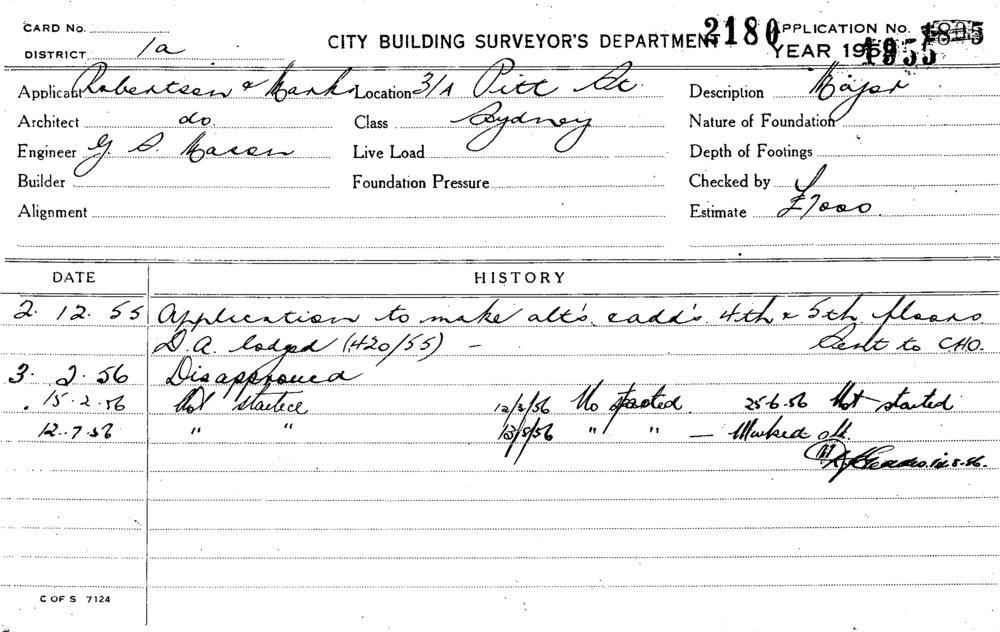 CARD No.
DISTRICT 1a
CITY BUILDING SURVEYOR'S DEPARTMENT
2180 APPLICATION No.
YEAR 1955
Applicant Robertson & Marks Location 31A Pitt St. Description Major
Architect do. Class Sydney Nature of Foundation
Engineer G. S. Mason Live Load Depth of Footings
Builder Foundation Pressure Checked by
Alignment Estimate £7000.
DATE HISTORY
2. 12. 55 Application to make alt's. & add's. 4th & 5th floors
D.A. lodged (420/55) — Sent to CHO.
3. 2. 56 Disapproved
15.2.56 Not started 12/3/56 No started. 25.6.56 Not started
12.7.56 " " 13/8/56 " " — Marked off.
C OF S 7124